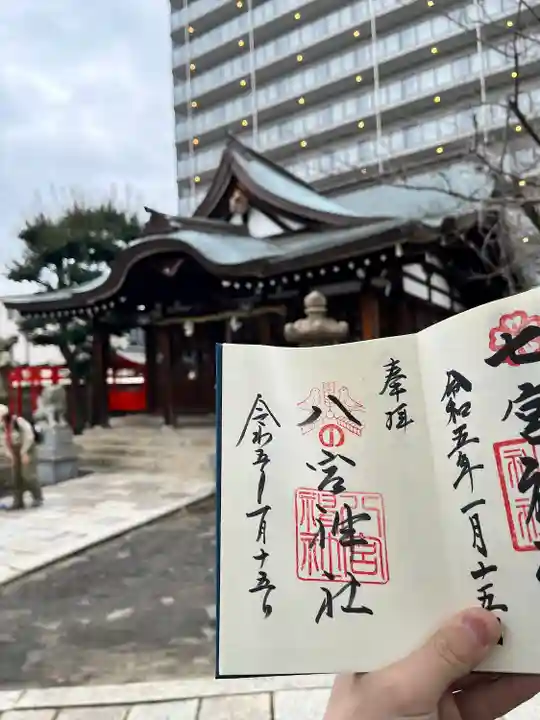 七宮神
令和五年一月十五
奉拝
八の宮神社
八宮神社
令和五年一月十五日